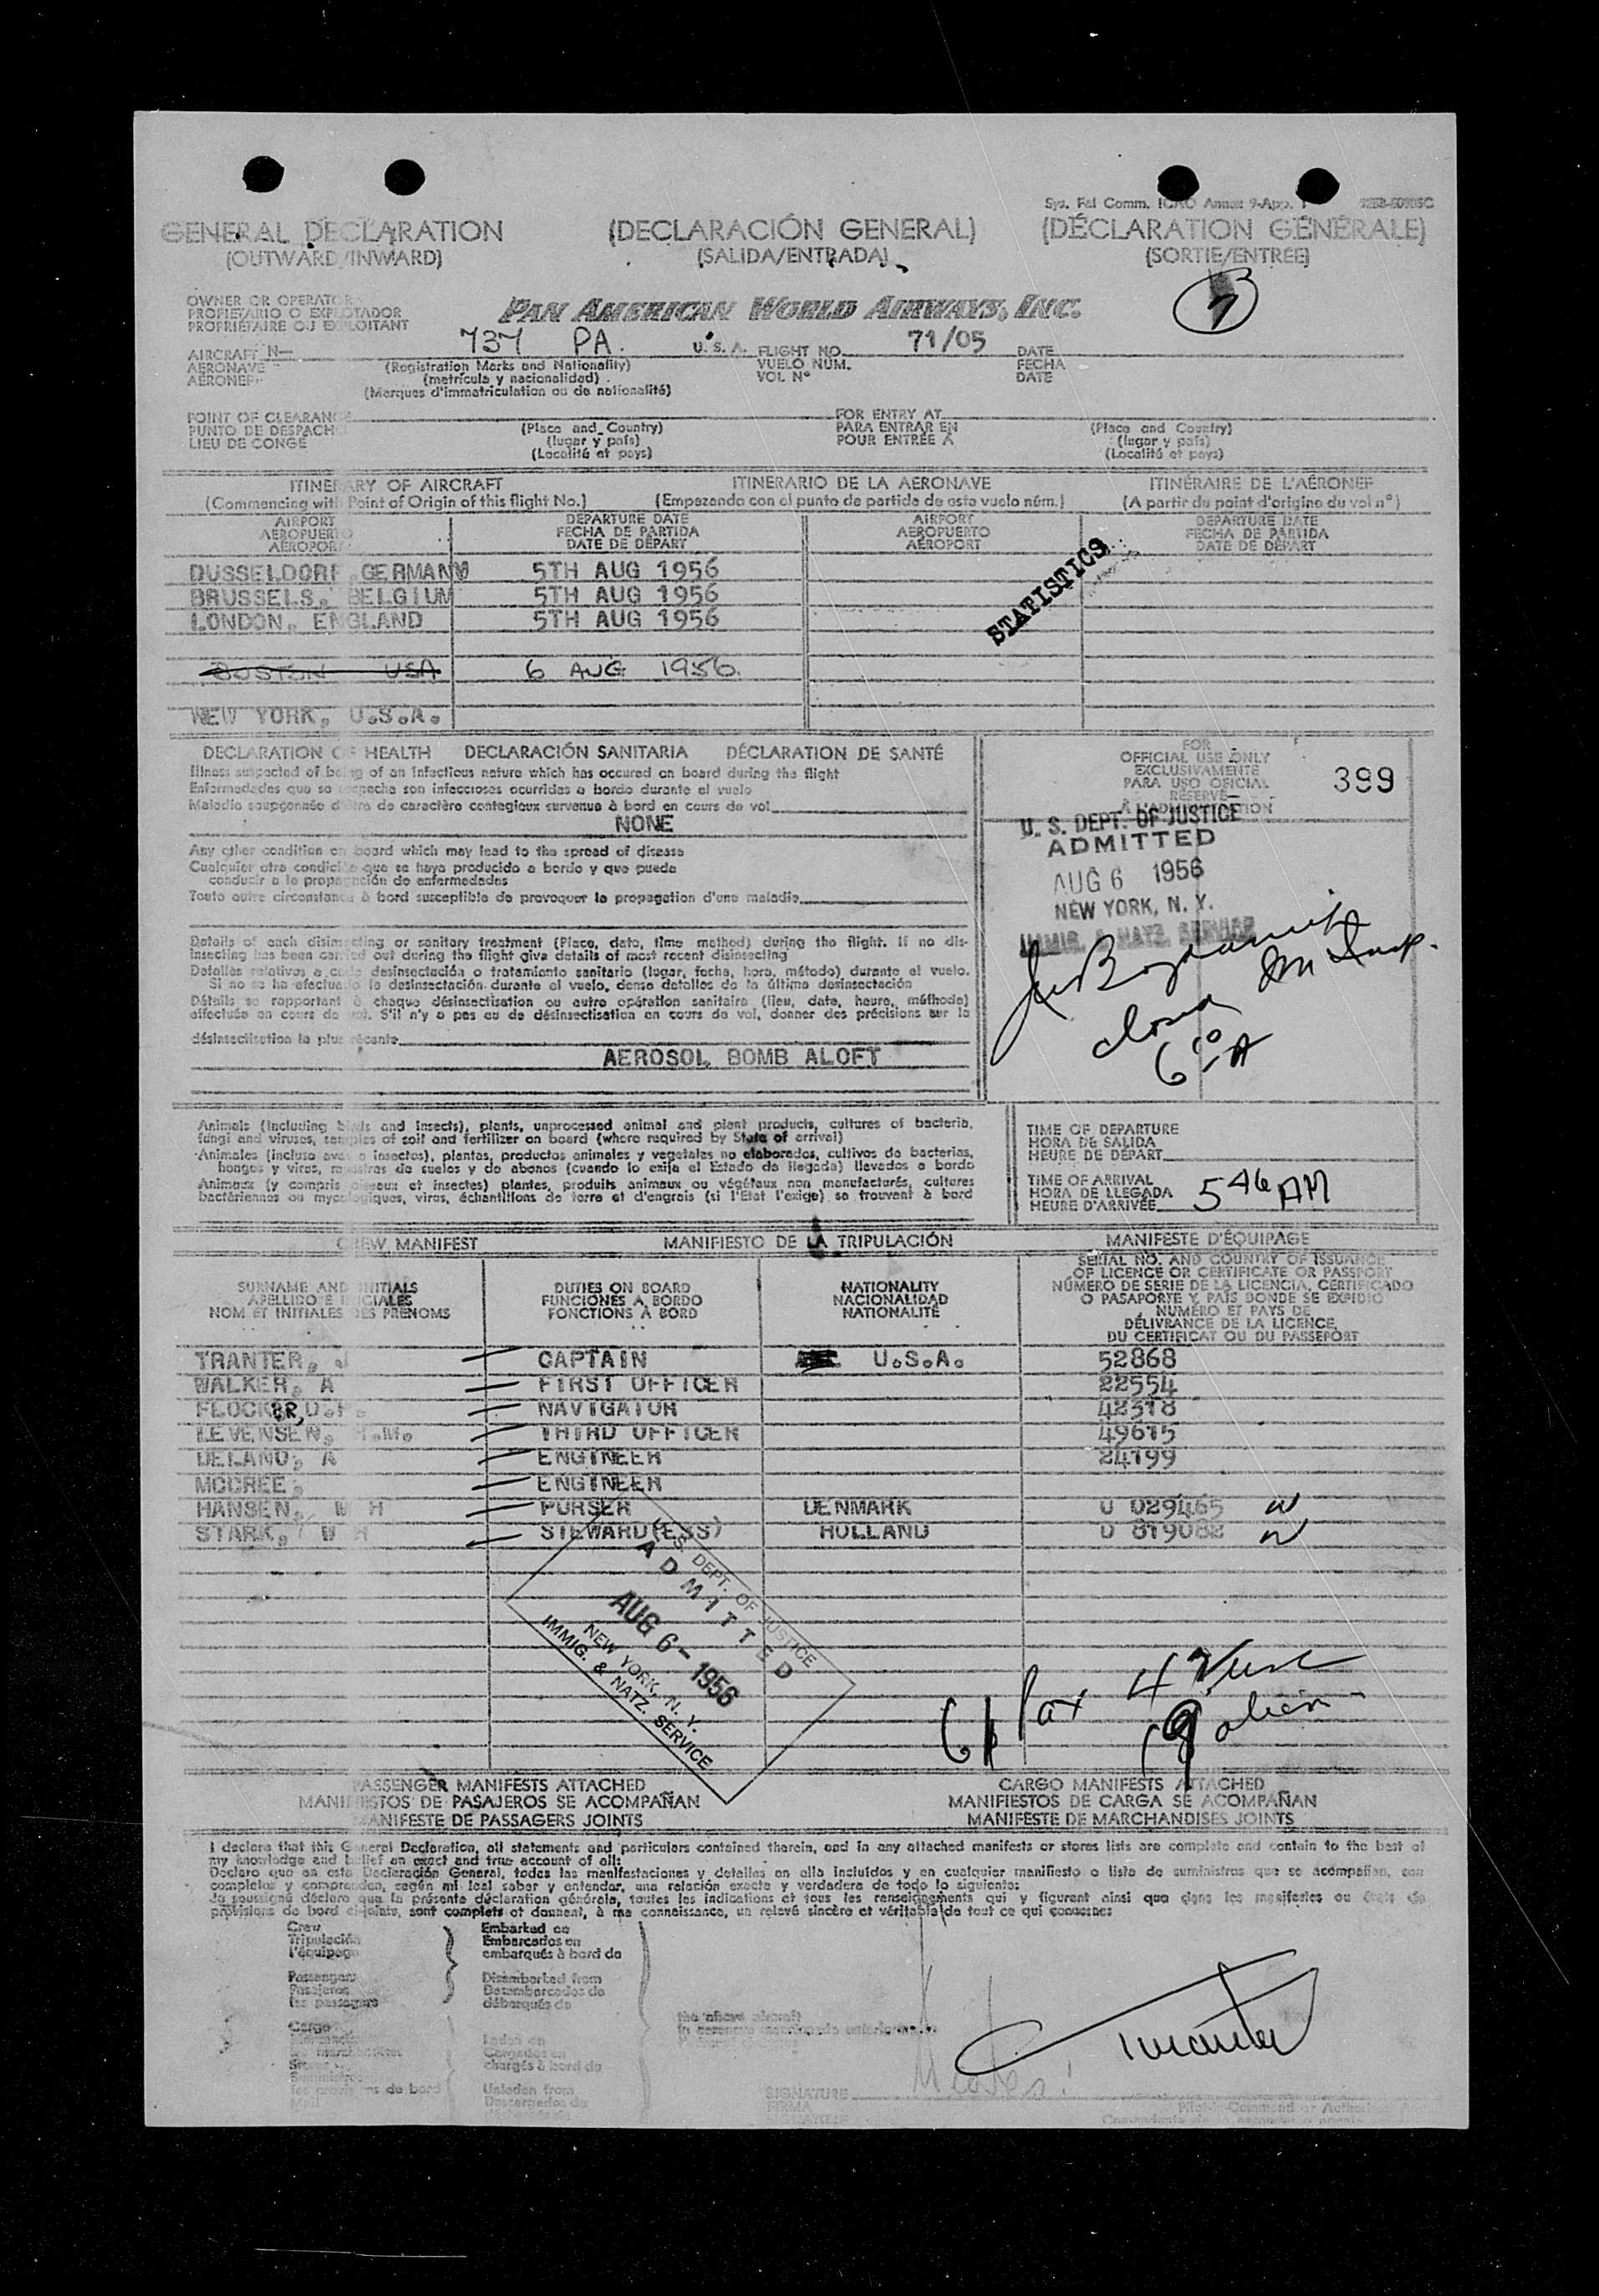 Sys. Fal Comm. ICAO Annex 9-App. 1
GENERAL DECLARATION (DECLARACIÓN GENERAL) (DÉCLARATION GÉNÉRALE)
(OUTWARD/INWARD) (SALIDA/ENTRADA) (SORTIE/ENTRÉE)
OWNER OR OPERATOR
PROPIETARIO O EXPLOTADOR
PROPRIÉTAIRE OU EXPLOITANT
PAN AMERICAN WORLD AIRWAYS, INC.
AIRCRAFT N— 737 PA. U.S.A. FLIGHT NO. 71/05 DATE
AERONAVE (Registration Marks and Nationality) VUELO NÚM. FECHA
AÉRONEF (matrícula y nacionalidad) VOL N° DATE
(Marques d'immatriculation ou de nationalité)
POINT OF CLEARANCE FOR ENTRY AT
PUNTO DE DESPACHO (Place and Country) PARA ENTRAR EN (Place and Country)
LIEU DE CONGÉ (lugar y país) POUR ENTRÉE À (lugar y país)
(Localité et pays) (Localité et pays)
ITINERARY OF AIRCRAFT ITINERARIO DE LA AERONAVE ITINÉRAIRE DE L'AÉRONEF
(Commencing with Point of Origin of this flight No.) (Empezando con el punto de partida de este vuelo núm.) (A partir du point d'origine du vol n°)
AIRPORT DEPARTURE DATE AIRPORT DEPARTURE DATE
AEROPUERTO FECHA DE PARTIDA AEROPUERTO FECHA DE PARTIDA
AÉROPORT DATE DE DÉPART AÉROPORT DATE DE DÉPART
STATISTICS
DUSSELDORF GERMANY 5TH AUG 1956
BRUSSELS, BELGIUM 5TH AUG 1956
LONDON, ENGLAND 5TH AUG 1956
BOSTON USA 6 AUG 1956.
NEW YORK, U.S.A.
DECLARATION OF HEALTH DECLARACIÓN SANITARIA DÉCLARATION DE SANTÉ
Illness suspected of being of an infectious nature which has occured on board during the flight
Enfermedades que se sospecha son infecciosas ocurridas a bordo durante el vuelo
Maladie soupçonnée d'être de caractère contagieux survenue à bord en cours de vol
NONE
Any other condition on board which may lead to the spread of disease
Cualquier otra condición que se haya producido a bordo y que pueda
conducir a la propagación de enfermedades
Toute autre circonstance à bord susceptible de provoquer la propagation d'une maladie
Details of each disinsecting or sanitary treatment (Place, date, time method) during the flight. If no dis-
insecting has been carried out during the flight give details of most recent disinsecting
Detalles relativos a cada desinsectación o tratamiento sanitario (lugar, fecha, hora, método) durante el vuelo.
Si no se ha efectuado la desinsectación durante el vuelo, dense detalles de la última desinsectación
Détails se rapportant à chaque désinsectisation ou autre opération sanitaire (lieu, date, heure, méthode)
effectuée en cours de vol. S'il n'y a pas eu de désinsectisation en cours de vol, donner des précisions sur la
désinsectisation la plus récente
AEROSOL BOMB ALOFT
FOR
OFFICIAL USE ONLY
EXCLUSIVAMENTE
PARA USO OFICIAL
RÉSERVÉ
À L'ADMINISTRATION
399
U. S. DEPT. OF JUSTICE
ADMITTED
AUG 6 1956
NEW YORK, N. Y.
IMMIG. & NATZ. SERVICE
Animals (including birds and insects), plants, unprocessed animal and plant products, cultures of bacteria,
fungi and viruses, samples of soil and fertilizer on board (where required by State of arrival)
Animales (incluso aves e insectos), plantas, productos animales y vegetales no elaborados, cultivos de bacterias,
hongos y virus, muestras de suelos y de abonos (cuando lo exija el Estado de llegada) llevados a bordo
Animaux (y compris oiseaux et insectes) plantes, produits animaux ou végétaux non manufacturés, cultures
bactériennes ou mycologiques, virus, échantillons de terre et d'engrais (si l'État l'exige) se trouvant à bord
TIME OF DEPARTURE
HORA DE SALIDA
HEURE DE DÉPART
TIME OF ARRIVAL
HORA DE LLEGADA
HEURE D'ARRIVÉE 5 46 AM
CREW MANIFEST MANIFIESTO DE LA TRIPULACIÓN MANIFESTE D'ÉQUIPAGE
SURNAME AND INITIALS
APELLIDO E INICIALES
NOM ET INITIALES DES PRÉNOMS
DUTIES ON BOARD
FUNCIONES A BORDO
FONCTIONS À BORD
NATIONALITY
NACIONALIDAD
NATIONALITÉ
SERIAL NO. AND COUNTRY OF ISSUANCE
OF LICENCE OR CERTIFICATE OR PASSPORT
NÚMERO DE SERIE DE LA LICENCIA, CERTIFICADO
O PASAPORTE Y PAÍS DONDE SE EXPIDIÓ
NUMÉRO ET PAYS DE
DÉLIVRANCE DE LA LICENCE,
DU CERTIFICAT OU DU PASSEPORT
TRANTER, J CAPTAIN U.S.A. 52868
WALKER, A FIRST OFFICER 22554
NAVIGATOR 42318
LEVENSEN, H.M. THIRD OFFICER 49615
DELANO, A ENGINEER 24199
MCCREE, ENGINEER
HANSEN, W H PURSER DENMARK U 029465
STARK, W H STEWARD(ESS) HOLLAND D 819082
U.S. DEPT. OF JUSTICE
ADMITTED
AUG 6 - 1956
NEW YORK, N. Y.
IMMIG. & NATZ. SERVICE
61 Pax
PASSENGER MANIFESTS ATTACHED CARGO MANIFESTS ATTACHED
MANIFIESTOS DE PASAJEROS SE ACOMPAÑAN MANIFIESTOS DE CARGA SE ACOMPAÑAN
MANIFESTE DE PASSAGERS JOINTS MANIFESTE DE MARCHANDISES JOINTS
I declare that this General Declaration, all statements and particulars contained therein, and in any attached manifests or stores lists are complete and contain to the best of
my knowledge and belief an exact and true account of all:
Declaro que en esta Declaración General, todas las manifestaciones y detalles en ella incluidos y en cualquier manifiesto o lista de suministros que se acompañen, son
completos y comprenden, según mi leal saber y entender, una relación exacta y verdadera de todo lo siguiente:
Je soussigné déclare que la présente déclaration générale, toutes les indications et tous les renseignements qui y figurent ainsi que dans les manifestes ou états de
provisions de bord ci-joints, sont complets et donnent, à ma connaissance, un relevé sincère et véritable de tout ce qui concerne:
Crew Embarked on
Tripulación Embarcados en
l'équipage embarqués à bord de
Passengers Disembarked from
Pasajeros Desembarcados de
les passagers débarqués de
the above aircraft
Cargo
Laden on
Cargados en
chargés à bord de
Suministros
Unladen from
Descargados de
Mail
SIGNATURE
FIRMA
Pilot-in-Command or Authorized